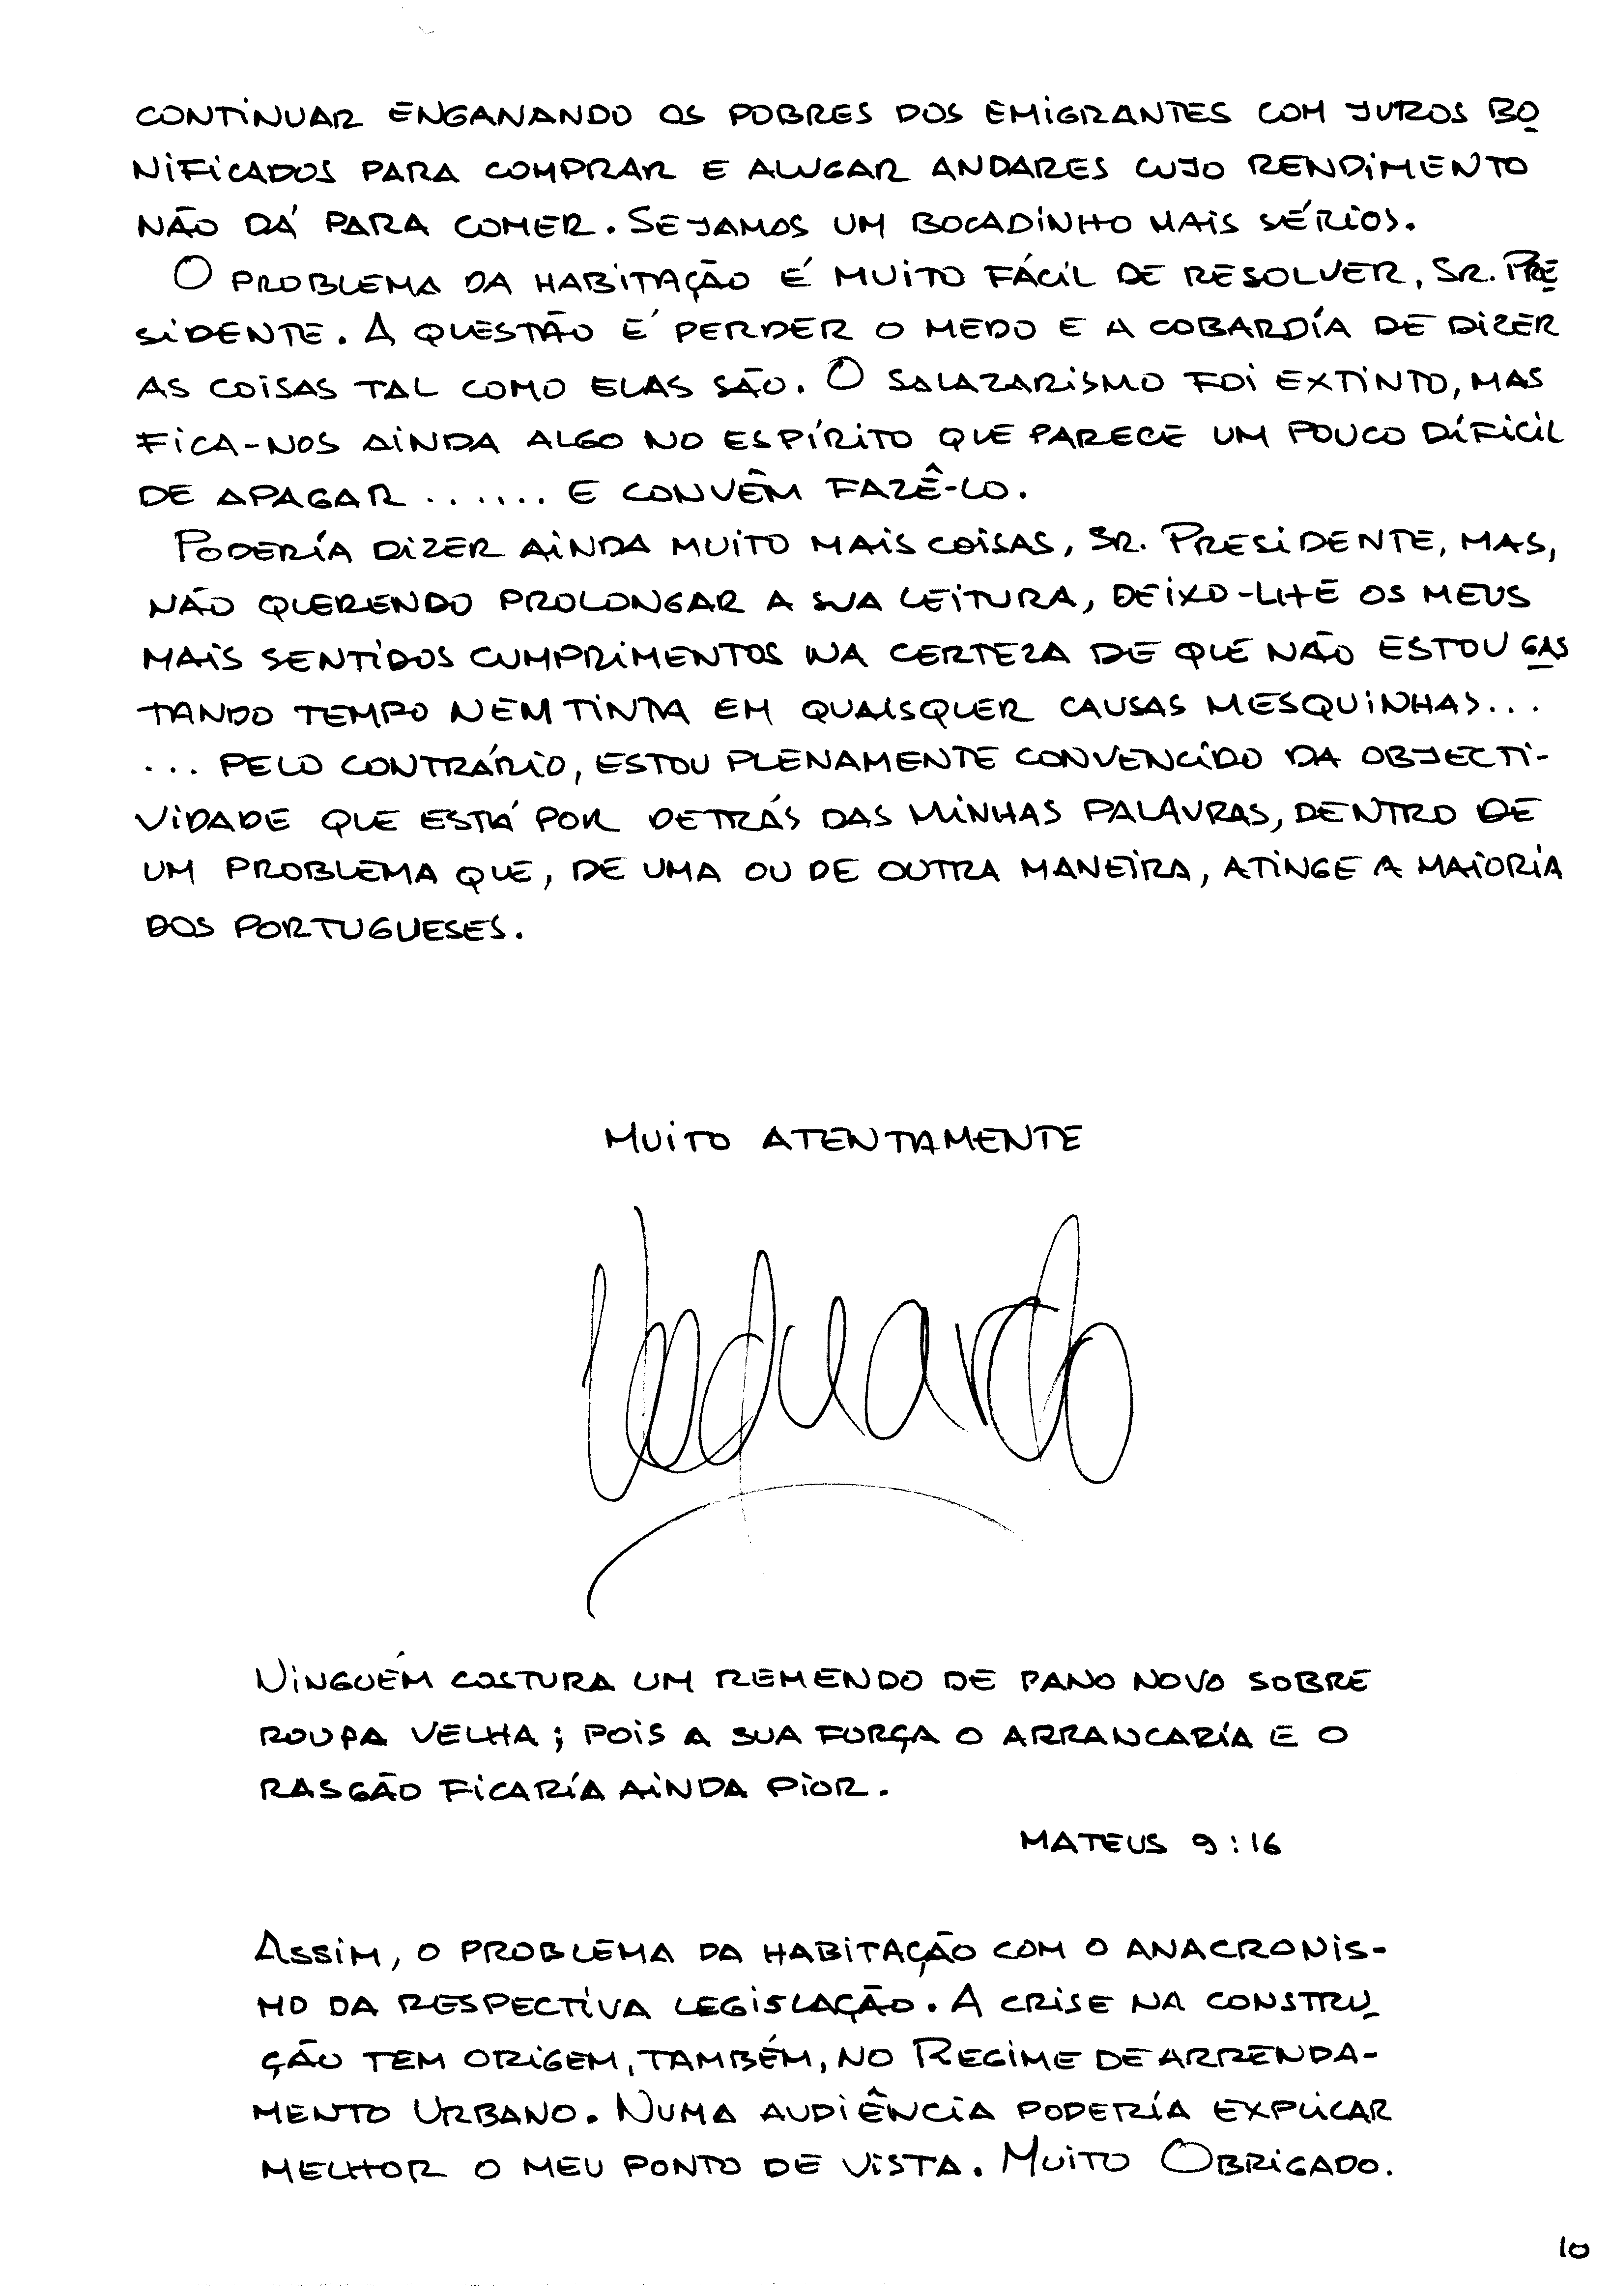 CONTINUAR ENGANANDO OS POBRES DOS EMIGRANTES COM JUROS BO
NIFICADOS PARA COMPRAR E ALUGAR ANDARES CUJO RENDIMENTO
NÃO DÁ PARA COMER. SEJAMOS UM BOCADINHO MAIS SÉRIOS.
O PROBLEMA DA HABITAÇÃO É MUITO FÁCIL DE RESOLVER, SR. PRE
SIDENTE. A QUESTÃO É PERDER O MEDO E A COBARDÍA DE DIZER
AS COISAS TAL COMO ELAS SÃO. O SALAZARISMO FOI EXTINTO, MAS
FICA-NOS AINDA ALGO NO ESPÍRITO QUE PARECE UM POUCO DÍFICIL
DE APAGAR ...... E CONVÊM FAZÊ-LO.
PODERÍA DIZER AINDA MUITO MAIS COISAS, SR. PRESIDENTE, MAS,
NÃO QUERENDO PROLONGAR A SUA LEITURA, DEIXO-LHE OS MEUS
MAIS SENTIDOS CUMPRIMENTOS NA CERTEZA DE QUE NÃO ESTOU GAS
TANDO TEMPO NEM TINTA EM QUAISQUER CAUSAS MESQUINHAS...
... PELO CONTRÁRIO, ESTOU PLENAMENTE CONVENCIDO DA OBJECTI-
VIDADE QUE ESTÁ POR DETRÁS DAS MINHAS PALAVRAS, DENTRO DE
UM PROBLEMA QUE, DE UMA OU DE OUTRA MANEIRA, ATINGE A MAIORÍA
DOS PORTUGUESES.
MUITO ATENTAMENTE
NINGUÉM COSTURA UM REMENDO DE PANO NOVO SOBRE
ROUPA VELHA; POIS A SUA FORÇA O ARRANCARÍA E O
RASGÃO FICARÍA AINDA PIOR.
MATEUS 9:16
ASSIM, O PROBLEMA DA HABITAÇÃO COM O ANACRONIS-
MO DA RESPECTIVA LEGISLAÇÃO. A CRISE NA CONSTRU
ÇÃO TEM ORIGEM, TAMBÉM, NO REGIME DE ARRENDA-
MENTO URBANO. NUMA AUDIÊNCIA PODERÍA EXPLICAR
MELHOR O MEU PONTO DE VISTA. MUITO OBRIGADO.
10